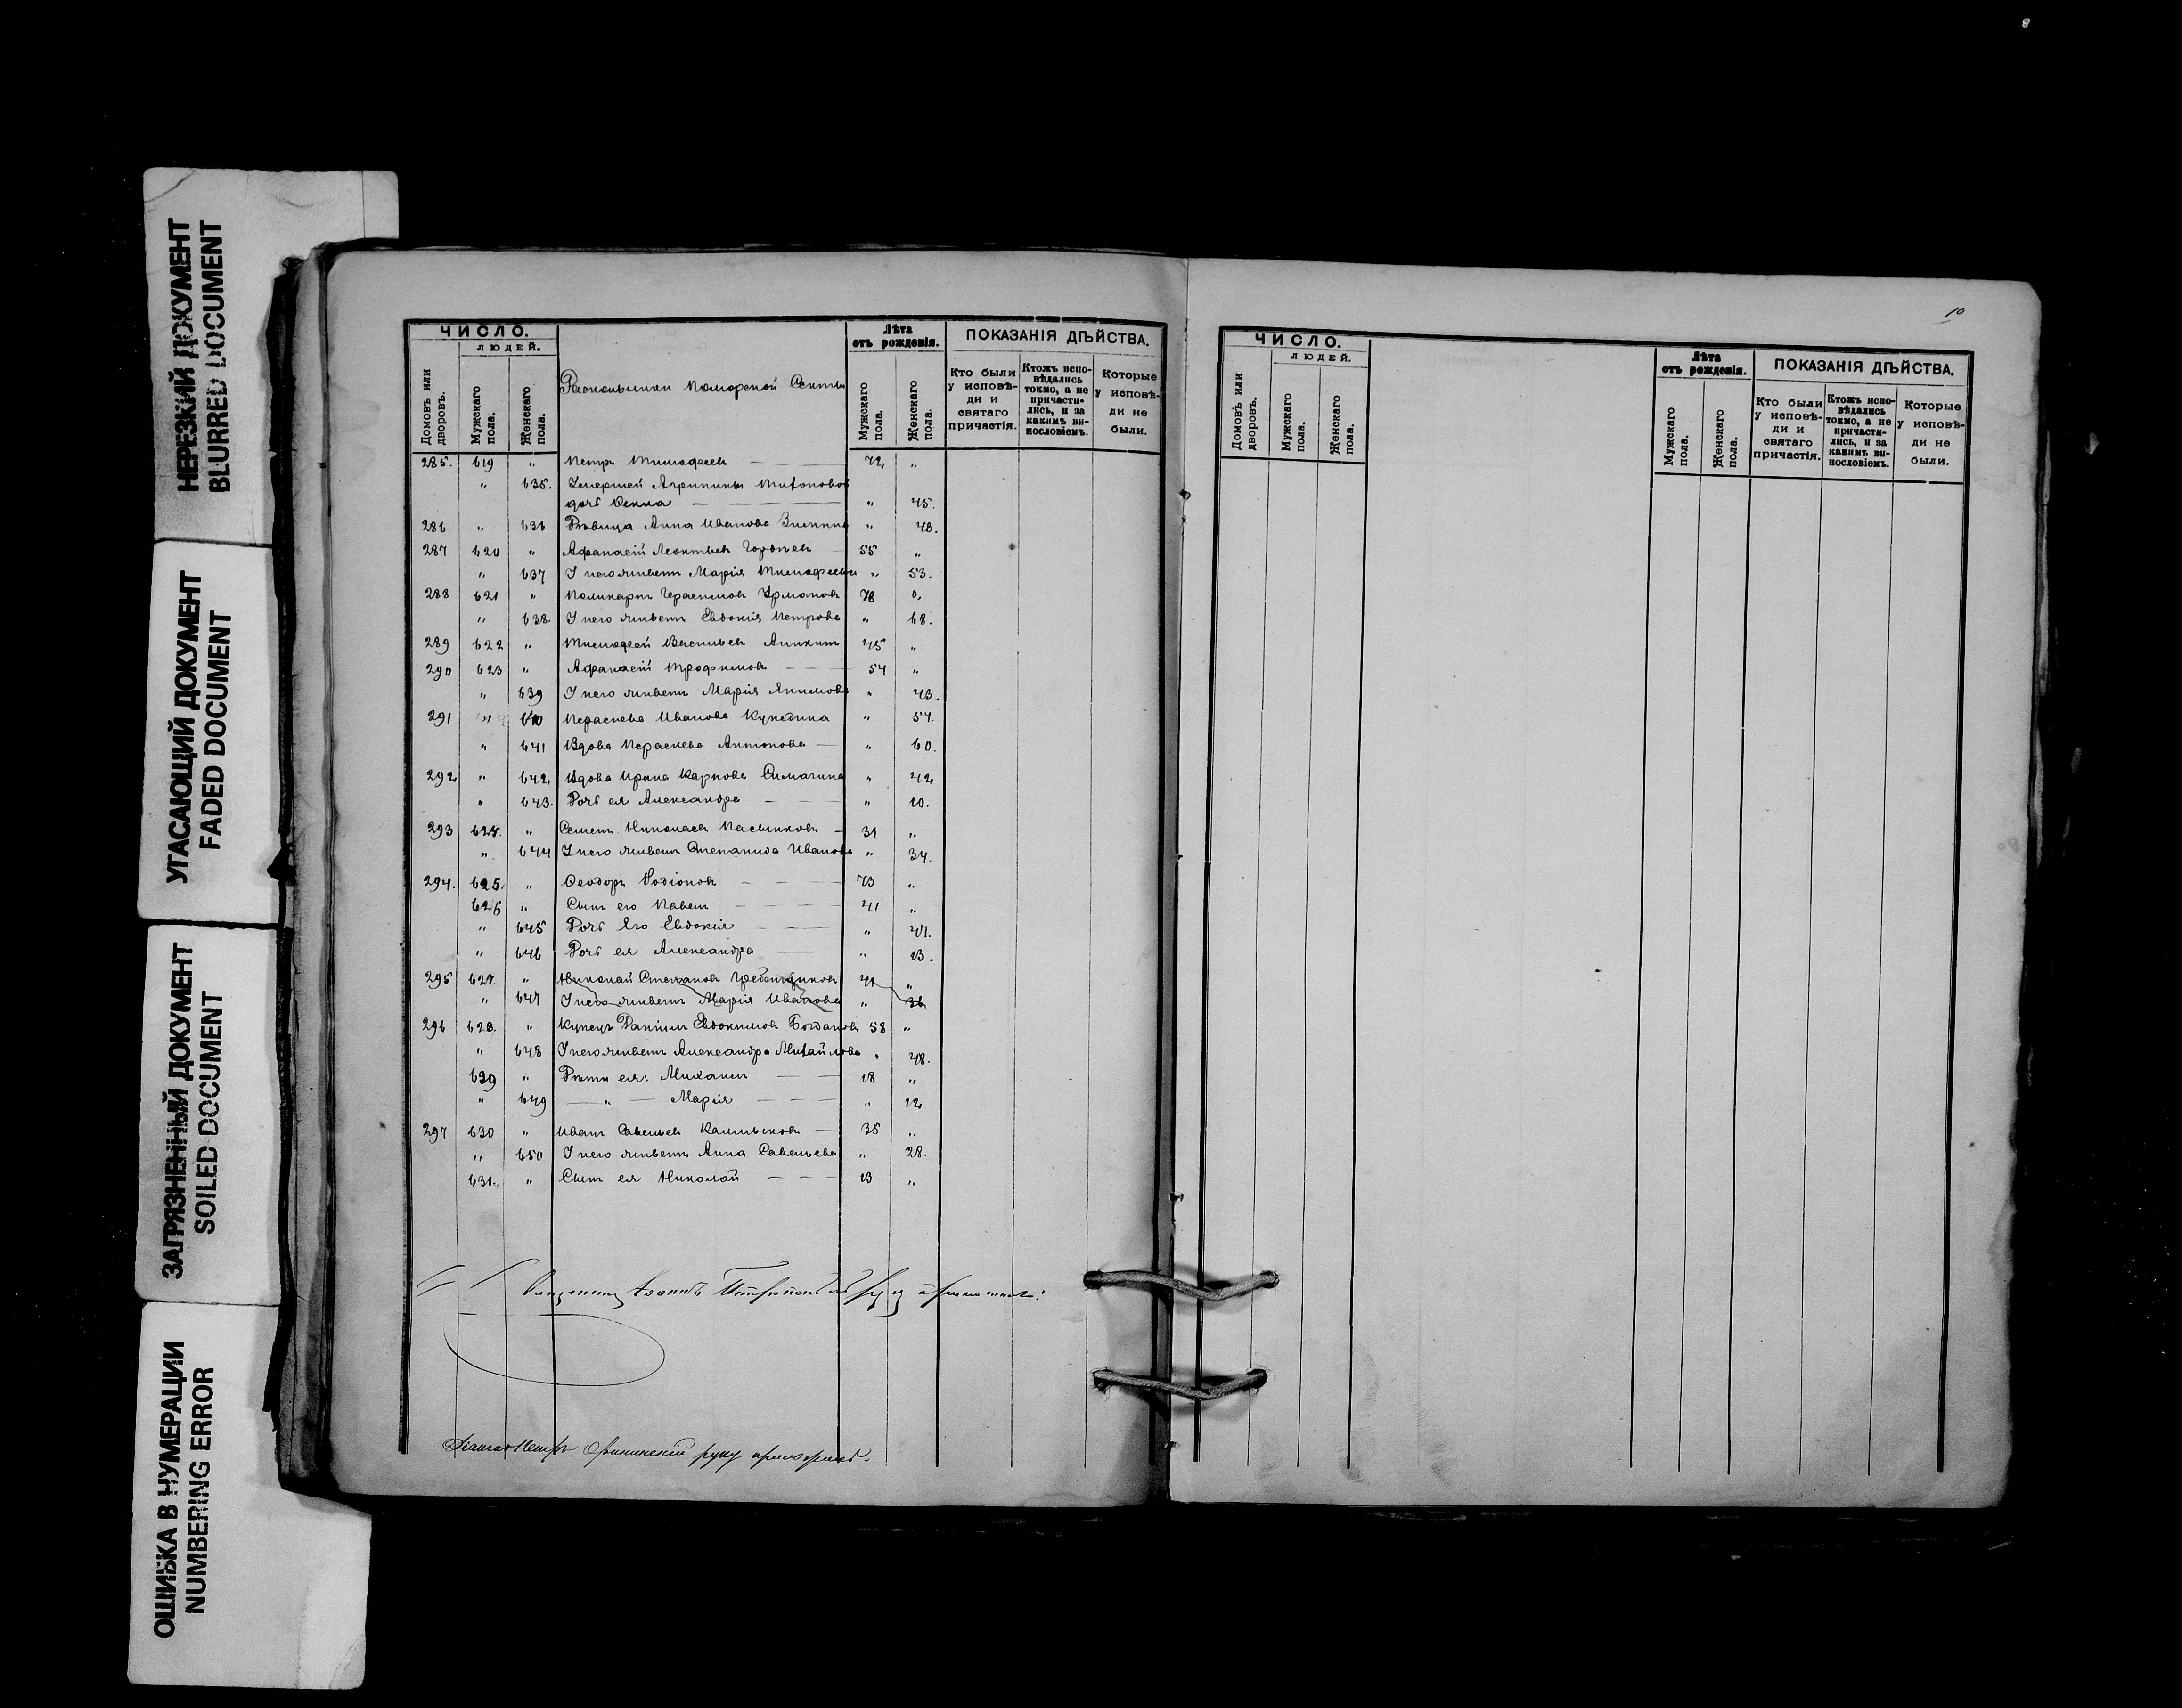 НЕРЕЗКИЙ ДОКУМЕНТ
BLURRED DOCUMENT
УГАСАЮЩИЙ ДОКУМЕНТ
FADED DOCUMENT
ЗАГРЯЗНЕННЫЙ ДОКУМЕНТ
SOILED DOCUMENT
ОШИБКА В НУМЕРАЦИИ
NUMBERING ERROR
ЧИСЛО.
людей.
Домовъ или дворовъ.
Мужскаго пола.
Женскаго пола.
Раскольники Поморской Секты
Лѣта отъ рожденія.
Мужскаго пола.
Женскаго пола.
ПОКАЗАНІЯ ДѢЙСТВА.
Кто были у исповѣ-ди и святаго причастія.
Ктожъ испо-вѣдались токмо, а не причасти-лись, и за какимъ ви-нословіемъ.
Которые у исповѣ-ди не были.
285. 619 " Петръ Тимофеевъ 72 "
" 635. Умершей Агрипины
дочь " 45.
286 " 636 Дѣвица Анна Иванова " 48.
287 620 " Афанасій Леонтьев 55 "
" 637 У него живетъ Марія Тимофеева " 53.
288 621 " Поликарпъ Герасимовъ 78 "
" 638. У него живетъ Евдокія Петрова " 68.
289 622 " Тимофей Васильев Аникин 45 "
290 623 " Афанасій Трофимовъ 54 "
" 639 У него живетъ Марія Акимова " 43.
291 " 640 Параскева Иванова " 54.
" 641 Вдова Параскева Антонова " 60.
292 " 642 Вдова Ирина Карпова Симагина " 42
" 643. Дочь ея Александра " 10.
293 624. " Семенъ Николаевъ 31 "
" 644 У него живетъ Степанида Иванова " 34.
294. 625. " Феодоръ Родіоновъ 73 "
626 " Сынъ его Павелъ 41 "
" 645 Дочь Его Евдокія " 47.
" 646 Дочь ея Александра " 13.
295 627. " Николай Степановъ Гребенщиковъ 41 "
" 647 У него живетъ Марія Иванова " 36
296 628. " Купецъ Даніилъ Евдокимов Богданов 58 "
" 648 У него живетъ Александра Михайлова " 48.
629 " Дѣти ея: Михаилъ 18 "
" 649 " Марія " 12
297 630 " Иванъ Савельев Калмыковъ 35 "
" 650 У него живетъ Анна Савельева " 28.
631. " Сынъ ея Николай 13 "
Священникъ
Діаконъ Петръ руку приложилъ.
10
ЧИСЛО.
людей.
Домовъ или дворовъ.
Мужскаго пола.
Женскаго пола.
Лѣта отъ рожденія.
Мужскаго пола.
Женскаго пола.
ПОКАЗАНІЯ ДѢЙСТВА.
Кто были у исповѣ-ди и святаго причастія.
Ктожъ испо-вѣдались токмо, а не причасти-лись, и за какимъ ви-нословіемъ.
Которые у исповѣ-ди не были.